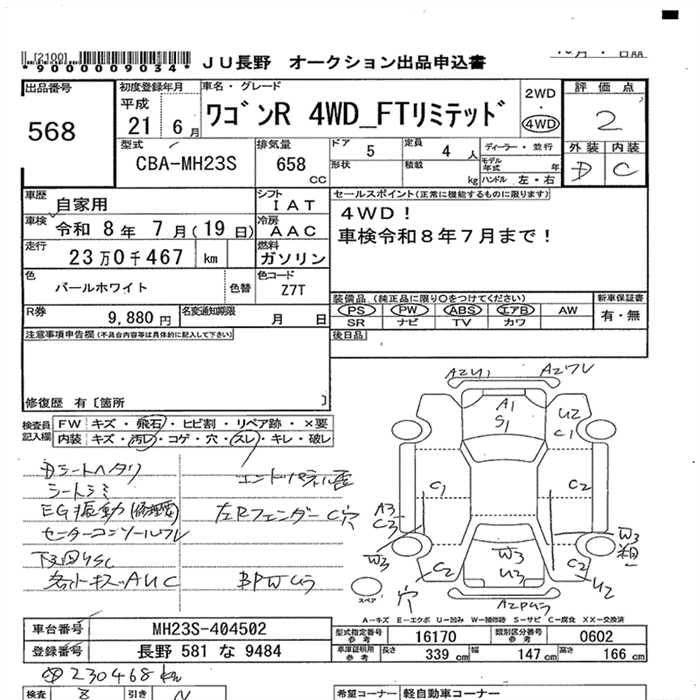 [2100]
*9000009034*
JU長野 オークション出品申込書
出品番号 568
初度登録年月 平成 21年 6月
車名・グレード ワゴンR 4WD_FTリミテッド
2WD ・ 4WD
評価点 2
外装 内装 D C
型式 CBA-MH23S
排気量 658 CC
ドア 5
定員 4 人
形状
積載 kg
ディーラー・並行
モデル年式 年
ハンドル 左・右
車歴 自家用
シフト IAT
車検 令和 8年 7月(19日)
冷房 AAC
走行 23万0千467 km
燃料 ガソリン
色 パールホワイト 色替
色コード Z7T
R券 9,880円
名変通知期限 月 日
セールスポイント(正常に機能するものに限ります)
4WD!
車検令和8年7月まで!
装備品(純正品に限り○をつけてください)
PS PW ABS エアB AW
SR ナビ TV カワ
新車保証書 有・無
後日品
注意事項申告欄(不具合内容等は具体的に記入して下さい)
修復歴 有〔箇所 〕
検査員記入欄
FW キズ・飛石・ヒビ割・リペア跡・×要
内装 キズ・汚レ・コゲ・穴・スレ・キレ・破レ
Dシートヘタリ
シートシミ
EG振動(修理要)
センターコンソールワレ
エンドパネル歪
左Rフェンダー C穴
AZUI
A1
S1
U2
C1
C1
C2
A3
C3
W3
W3
C2
W3
U3
C2
U2
穴
スペア
A-キズ E-エクボ U-凹み W-補修跡 S-サビ C-腐食 XX-交換済
車台番号 MH23S-404502
登録番号 長野 581 な 9484
型式指定番号 参考 16170
類別区分番号 参考 0602
車庫証明 参考 長さ 339 cm 幅 147 cm 高さ 166 cm
230468km
検査 8 引き N
希望コーナー 軽自動車コーナー